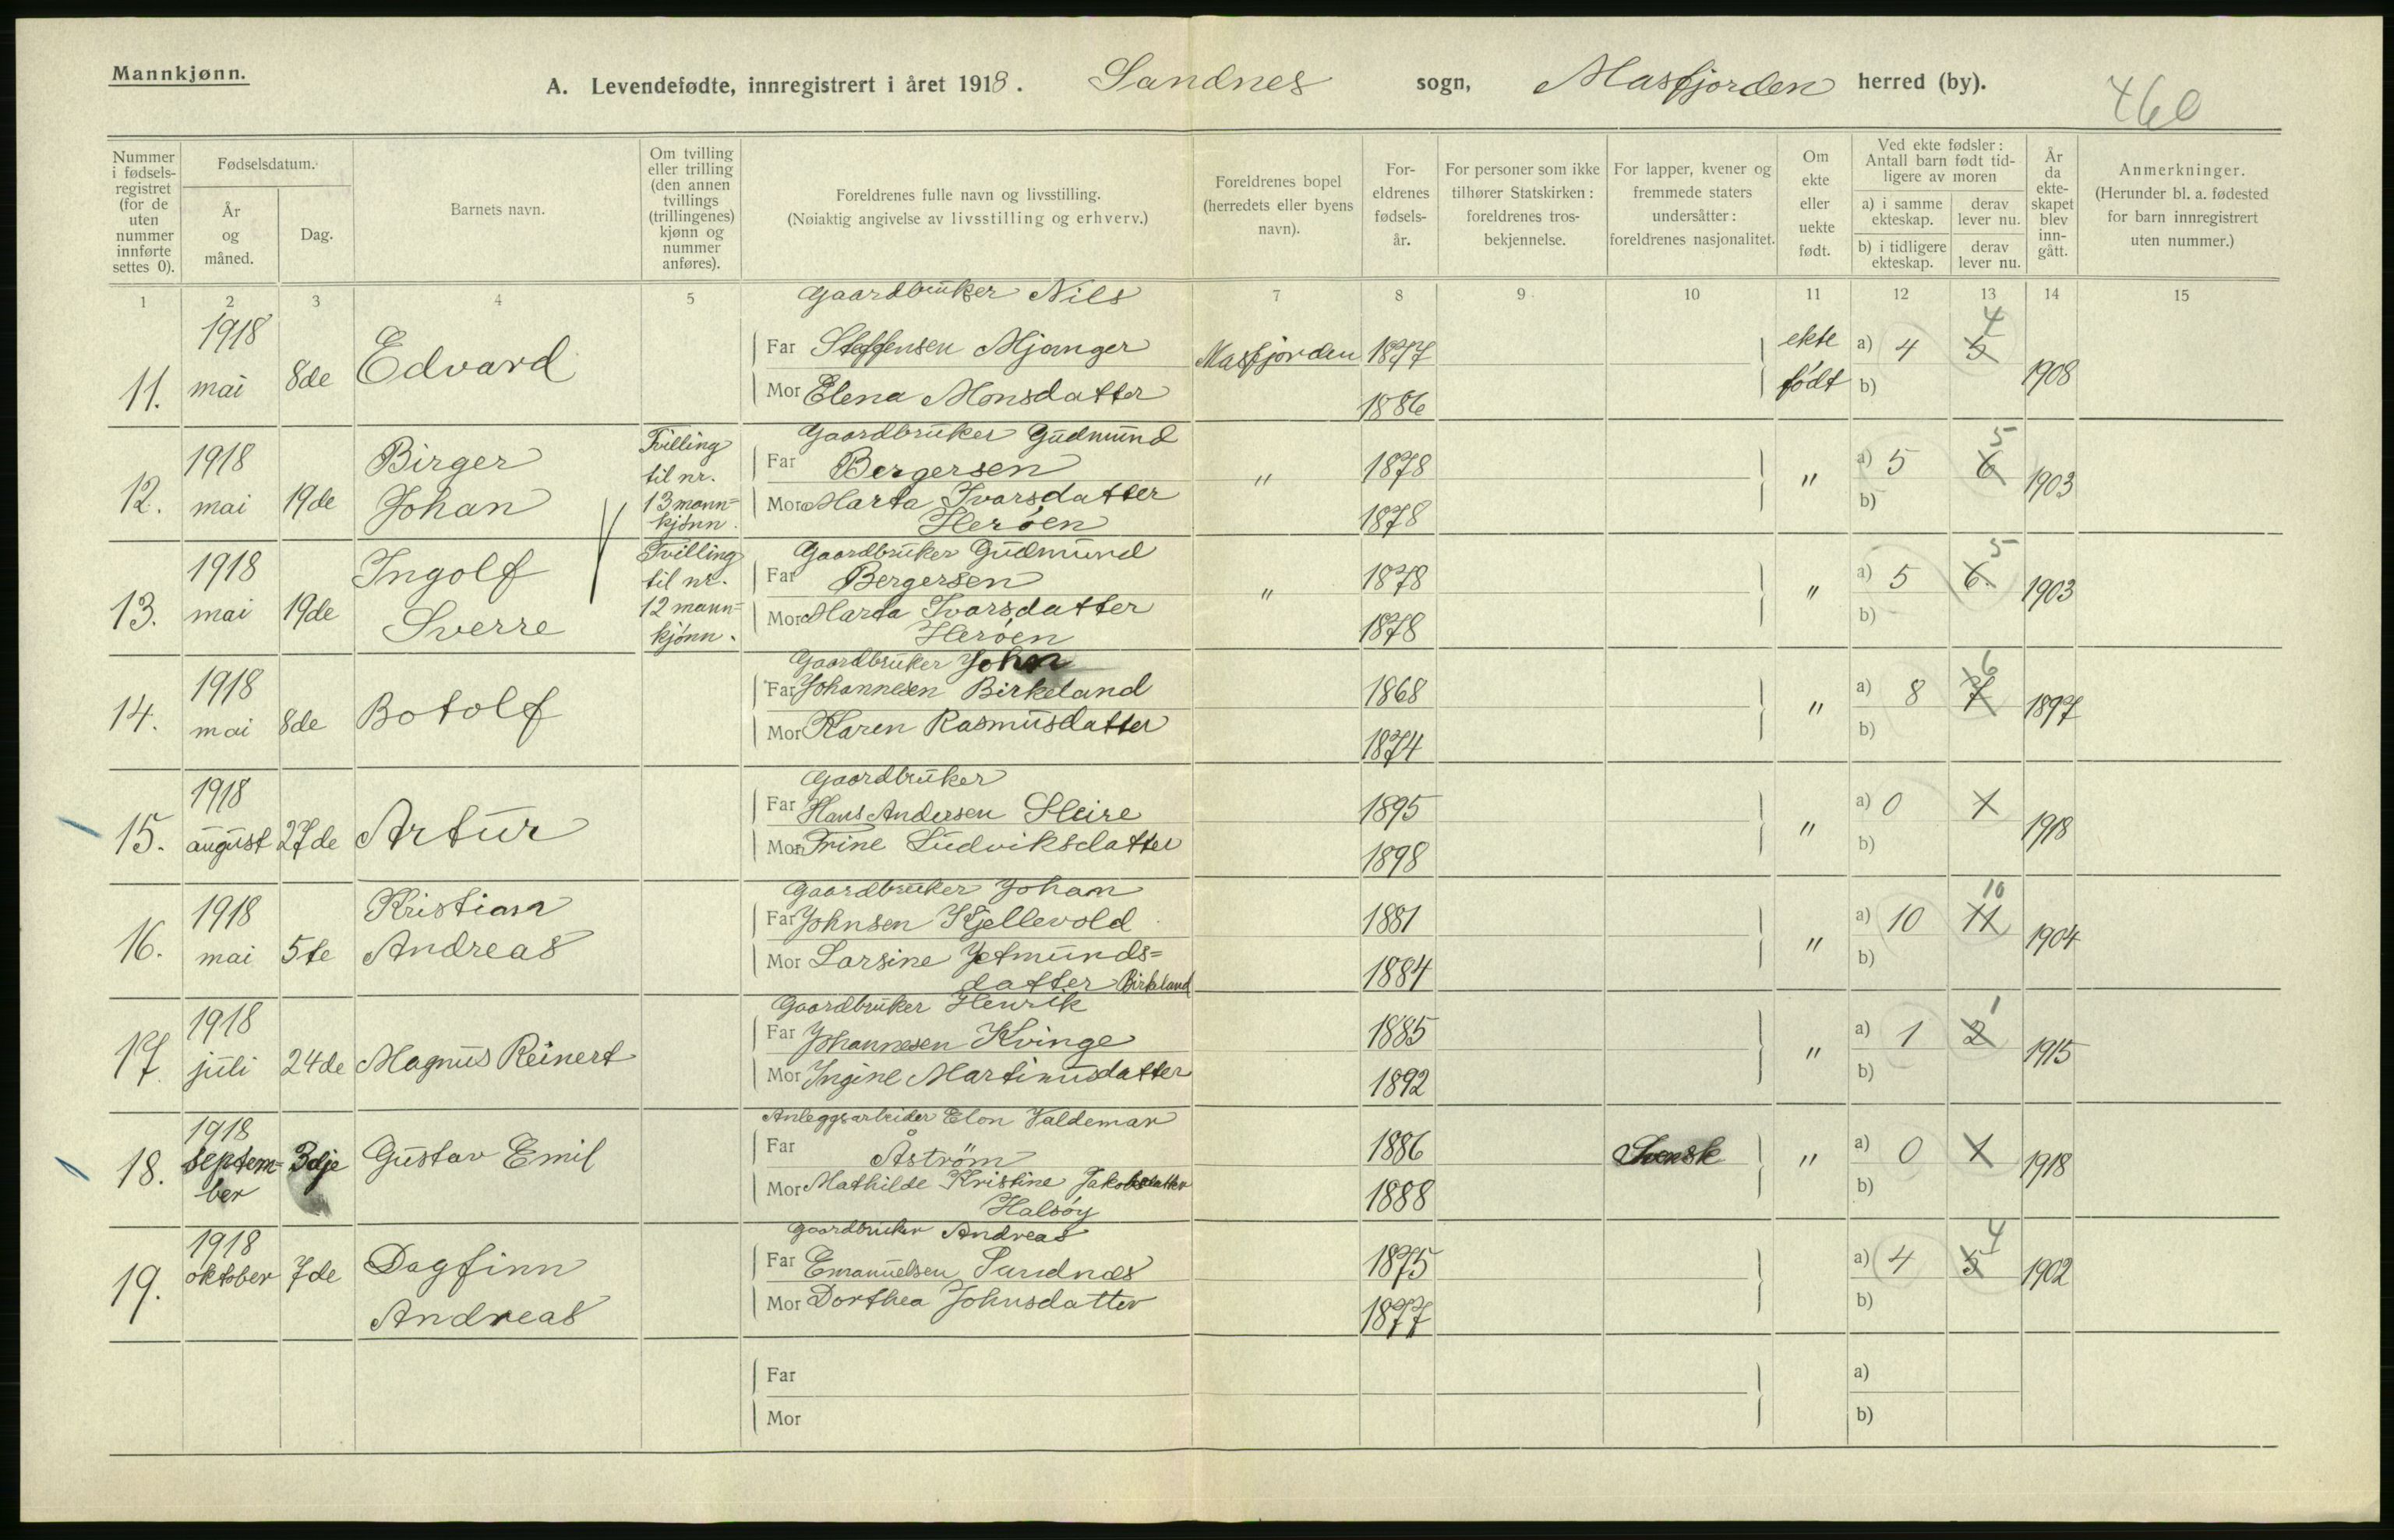 Mannkjønn.
A. Levendefødte, innregistrert i året 1918. Sandnes sogn, Masfjorden herred (by).
460
Nummer i fødsels-registret (for de uten nummer innførte settes 0).
Fødselsdatum.
År og måned.
Dag.
Barnets navn.
Om tvilling eller trilling (den annen tvillings (trillingenes) kjønn og nummer anføres).
Foreldrenes fulle navn og livsstilling.
(Nøiaktig angivelse av livsstilling og erhverv.)
Foreldrenes bopel (herredets eller byens navn).
For-eldrenes fødsels-år.
For personer som ikke tilhører Statskirken: foreldrenes tros-bekjennelse.
For lapper, kvener og fremmede staters undersåtter: foreldrenes nasjonalitet.
Om ekte eller uekte født.
Ved ekte fødsler: Antall barn født tid-ligere av moren
a) i samme ekteskap.
derav lever nu.
b) i tidligere ekteskap.
derav lever nu.
År da ekte-skapet blev inn-gått.
Anmerkninger.
(Herunder bl. a. fødested for barn innregistrert uten nummer.)
1 2 3 4 5 7 8 9 10 11 12 13 14 15
Gaardbruker Nils
11. 1918 mai 8de Edvard Far Steffensen Mjanger Masfjorden 1877 ekte født a) 4 5 4 1908
Mor Elena Monsdatter 1886 b)
Gaardbruker Gudmund
12. 1918 mai 19de Birger Johan Tvilling til nr. 13 mann=kjønn. Far Bergersen " 1878 " a) 5 6 5 1903
Mor Marta Ivarsdatter Herøen 1878 b)
Gaardbruker Gudmund
13. 1918 mai 19de Ingolf Sverre Tvilling til nr. 12 mann=kjønn. Far Bergersen " 1878 " a) 5 6. 5 1903
Mor Marta Ivarsdatter Herøen 1878 b)
Gaardbruker John
14. 1918 mai 8de Botolf Far Johannesen Birkeland 1868 " a) 8 7 6 1897
Mor Karen Rasmusdatter 1874 b)
Gaardbruker
15. 1918 august 27de Artur Far Hans Andersen Sleire 1895 " a) 0 1 1918
Mor Trine Ludviksdatter 1898 b)
Gaardbruker Johan
16. 1918 mai 5te Kristian Andreas Far Johnsen Kjellevold 1881 " a) 10 11 10 1904
Mor Larsine Jetmunds=datter Birkland 1884 b)
Gaardbruker Henrik
17. 1918 juli 24de Magnus Reinert Far Johannesen Kvinge 1885 " a) 1 2 1 1915
Mor Ingine Martinusdatter 1892 b)
Anleggsarbeider Elon Valdemar
18. 1918 septem-ber 3dje Gustav Emil Far Åström 1886 Svensk " a) 0 1 1918
Mor Mathilde Kristine Jakobsdatter Halsøy 1888 b)
Gaardbruker Andreas
19. 1918 oktober 7de Dagfinn Andreas Far Emanuelsen Sandnes 1875 a) 4 5 4 1902
Mor Dorthea Johnsdatter 1877 b)
Far a)
Mor b)